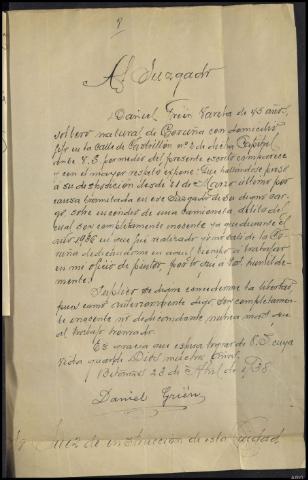 Al Juzgado
Daniel Grién Varela de 45 años,
soltero natural de Coruña con domicilio
en la calle de Castrillón nº 2 de dicha Capital
ante V.S. por medio del presente escrito comparece
y con el mayor respeto expone: Que hallándose preso
a su disposición desde 21 de Marzo último por
causa tramitada en ese Juzgado de su digno car-
go, sobre incendio de una Camioneta, delito del
cual soy completamente inocente ya que durante el
año 1936 en que fué realizado yo no salí de la Co-
ruña dedicándome en aquel tiempo a trabajar
en mi oficio de pintor, por lo que a V.S. humilde-
mente:
Suplico se digne concederme la libertad
pues como anteriormente digo soy completamen-
te inocente
al trabajo honrado.
Es gracia que espera lograr de V.S. cuya
vida guarde Dios muchos años.
Betanzos 23 de Abril de 1938.
Daniel Grién
Juez de instrucción de esta Ciudad